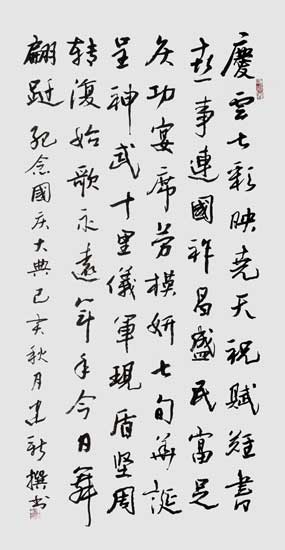 慶雲七彩映尧天祝賦難書
喜事連國祚昌盛民富足
庆功宴席劳模妍七旬華誕
呈神武十里儀軍現盾坚周
转復始歌永遠年年今日舞
翩跹 纪念國庆大典己亥秋月建新撰书